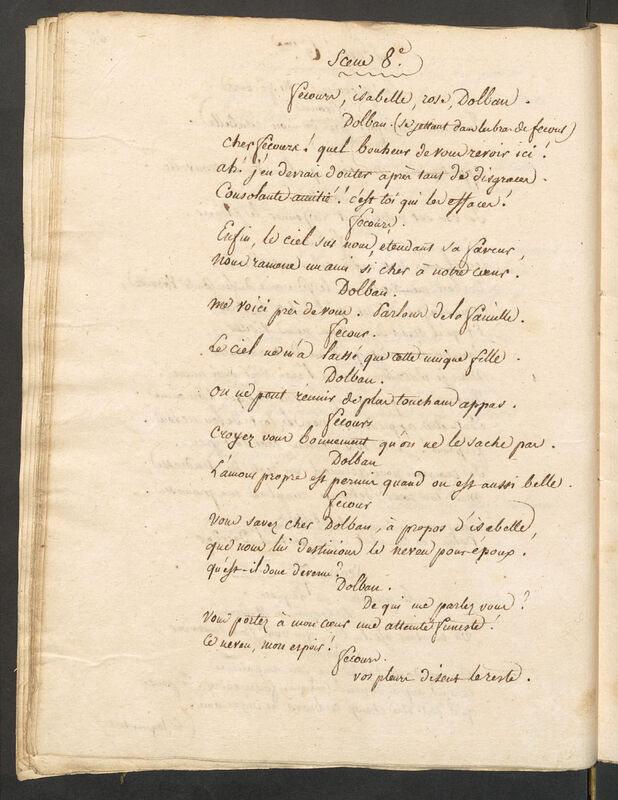 Scene 8.e
fecours, isabelle, rose, Dolban.
Dolban. (se jettant dans les bras de fecours)
cher fecours! quel bonheur de vous revoir ici!
ah! j'en devrais douter après tant de disgraces.
Consolante amitié! c'est toi qui les effaces!
fecours.
Enfin, le ciel sur nous, étendant sa faveur,
nous ramene un ami si cher à notre cœur.
Dolban.
me voici près de vous. Parlons de la famille.
fecours.
Le ciel ne m'a laissé que cette unique fille.
Dolban.
on ne peut réunir de plus touchans appas.
fecours
Croyez vous bonnement qu'on ne le sache pas.
Dolban
L'amour propre est permis quand on est aussi belle.
fecours
Vous savez cher Dolban, à propos d'isabelle,
que nous lui destinions le neveu pour époux.
qu'est-il donc devenu?
Dolban.
De qui me parlez vous?
Vous portez à mon cœur une atteinte funeste!
Ce neveu, mon espoir!
fecours.
vos pleurs disent le reste.